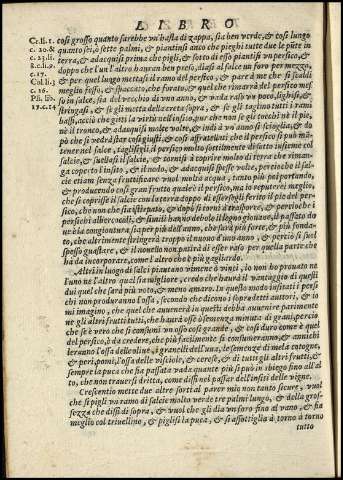 LIBRO
Cr.li.1.
c. 20.&
c. 23.li.
8.c.li.9.
c. 17.
Col.li.3
c. 16.
Pli. lib.
17.c.14
così grosso quanto sarebbe vn'hasta di zappa, sia ben verde, & così lungo
quanto sei, o sette palmi, & piantinsi anco che pieghi tutte due le pūte in
terra, & adacquisi prima che pigli, & sotto di esso piantisi vn persico, &
doppo che l'un l'altro hauran ben preso, diasi al salce un foro per mezzo,
& per quel luogo mettasi il ramo del persico, & pare à me che si scaldi
meglio fesso, & spaccato, che forato, & quel che rimarrà del persico mes
so in salce, sia del vecchio di vn anno, & vada raso vn poco, leghisi, &
stringasi, & se gli metta della creta sopra, & se gli taglino tutti i rami
bassi, acciò che gitti la virtù nell'insito, pur che non se gli tocchi nè il pie,
nè il tronco, & adacquisi molte volte, & indi à vn anno si
pò che si vedrà star così giusti, & così affrateliati che il persico si può mā
tener nel salce, taglisegli il persico molto sottilmente di sotto insieme col
salcio, & suellasi il salcio, & tornisi à coprire molto di terra che riman-
ga coperto l'insito, & il nodo, & adacquisi spesse volte, percioche il sal-
cie etiam senza fruttificare vuol molta acqua; tanto più poi portando,
& producendo così gran frutto quale è il persico, ma io reputerei meglio,
che se coprisse il salcie con la terra doppo di essersegli ferito il piè del per-
sico, che non che sia istirpato, & dopo si torni à trasporre, & percioche i
persichi albercocoli, & simili hanno debole il legno giouane, il passato do
ue è la congiontura, sia per più dell'anno, che sarà più forte, & più fonda-
to, che altrimenti stringerà troppo il nuouo d'uno anno, & perciò si suol
spesso guastare, & il nouello non patirà di esser raso per quella parte che
hà da incorporare, come l'altro che è più gagliardo.
Altri in luogo di salci piantano vimene ò vinci, io non ho prouato ne
l'uno ne l'altro qual sia migliore, credo che haurà il vantaggio di questi
dui quel che sarà più voto, & meno amaro. In questo modo insitati i persi
chi non produranno l'ossa, secondo che dicono i sopradetti autori, & io
mi imagino, che quel che auuenerà in questi debba auuenire parimente
ne gli altri frutti tutti, che haurà osso ò semenza munuta di grani, percio
che se è vero che si consumi vn osso così grande, & così duro come è quel
del persico, è da credere, che più facilmente si consumeranno, & annichi
leranno l'ossa dell'oliue, i granelli dell'uua, le semenze di mela cotogne,
& peri, pomi, l'ossa delle visciole, & cerese, & di tutti gli altri frutti, &
sempre la puca che sia passata vada quanto più si può in sbiego fino all'al
to, che non trauersi dritta, come dissi nel passar dell'insiti delle vigne.
Crescentio mette due altre sorti al parer mio non tanto secure, vuol
che si pigli vn ramo di salcie molto verde tre palmi lungo, & della gros-
sezza che dissi di sopra, & vuol che gli dia vn foro fino al vano, & fia
meglio col triuellino, & piglisi la puca, & si assottiglia à torno à torno
tutto